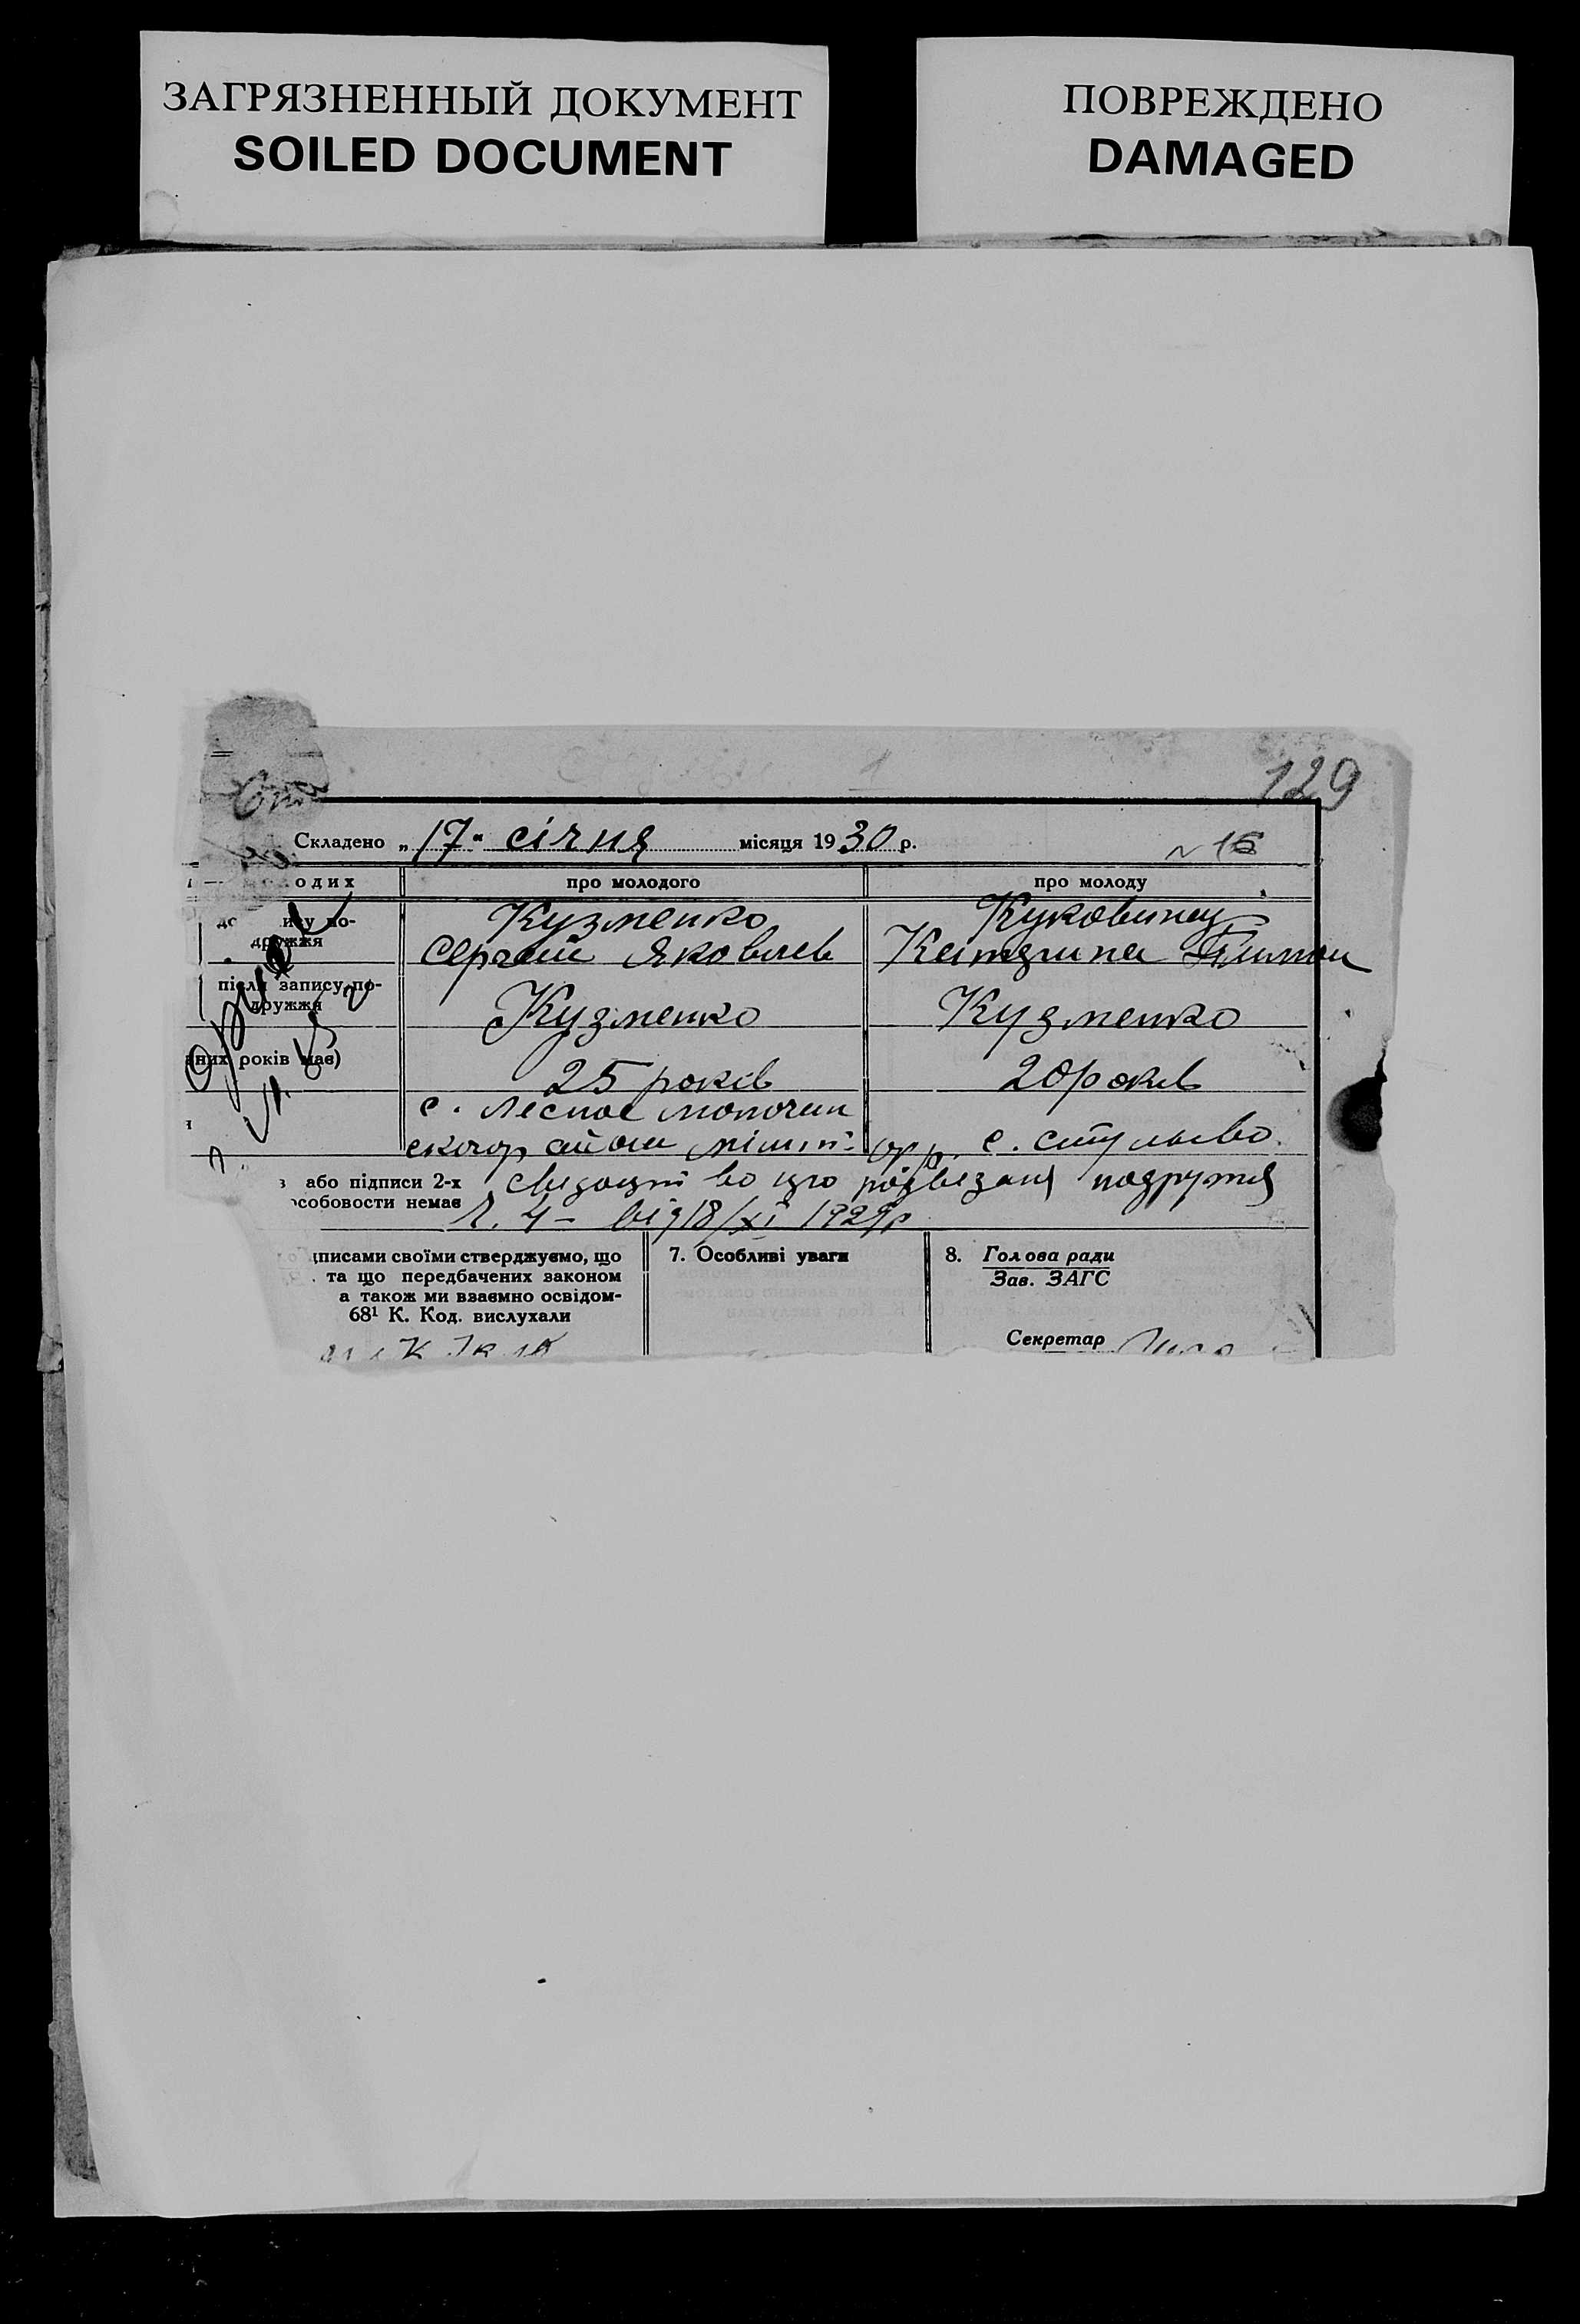 ЗАГРЯЗНЕННЫЙ ДОКУМЕНТ
SOILED DOCUMENT
ПОВРЕЖДЕНО
DAMAGED
129
Складено „17" січня місяця 1930 р.
N 16
одих
про молодого
про молоду
ису по-
дружжя
Кузменко
Сергей Яковлев
Куковинец
Катерина
після запису по-
дружжя
Кузменко
Кузменко
них років має)
25 років
20 років
с. Лесное
район
с. Ступново
або підписи 2-х
особовости немає
свидоцтво про розвезаня подружя
від 18/XI 1929р
дписами своїми стверджуємо, що
та що передбачених законом
а також ми взаємно освідом-
68¹ К. Код. вислухали
7. Особливі уваги
8. Голова ради
Зав. ЗАГС
Секретар